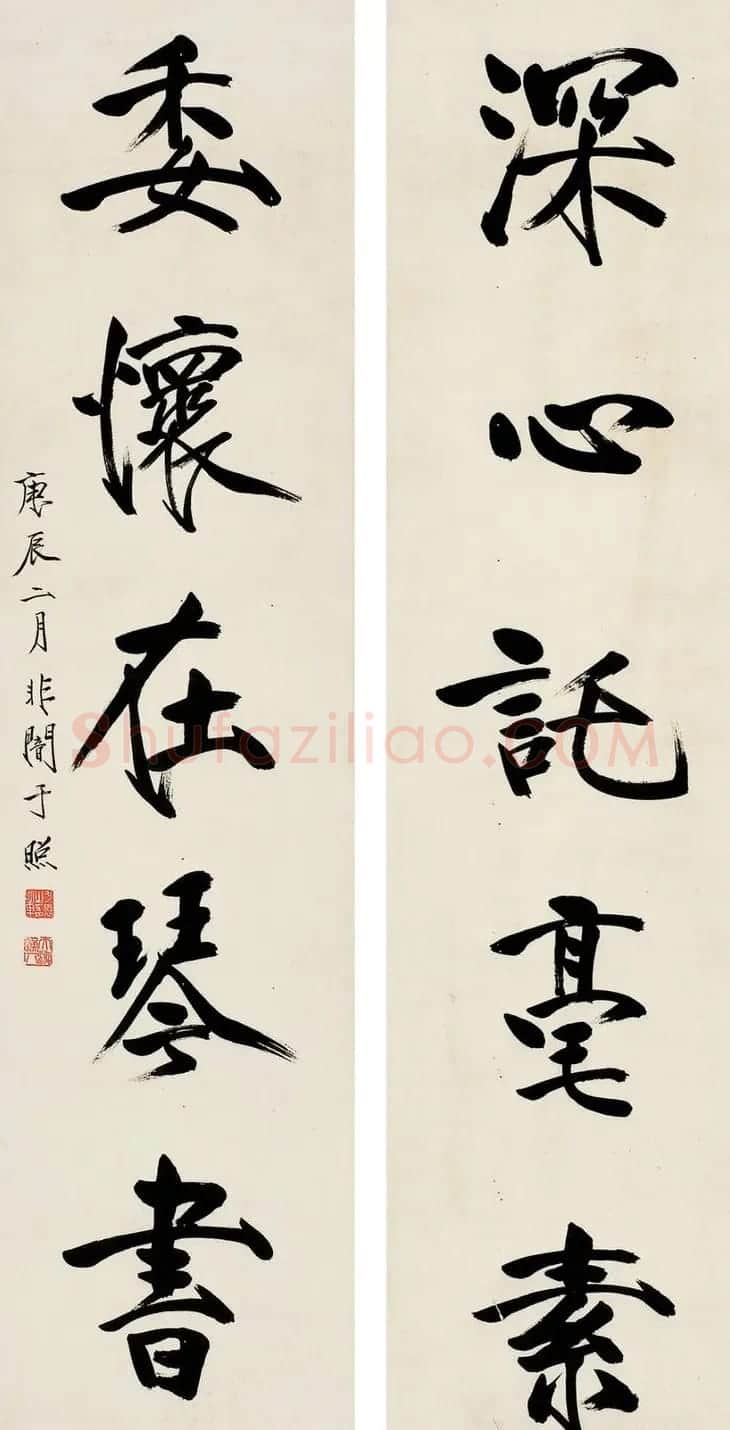 深心託毫素
委懷在琴書
庚辰二月非闇于照
Shufaziliao.COM